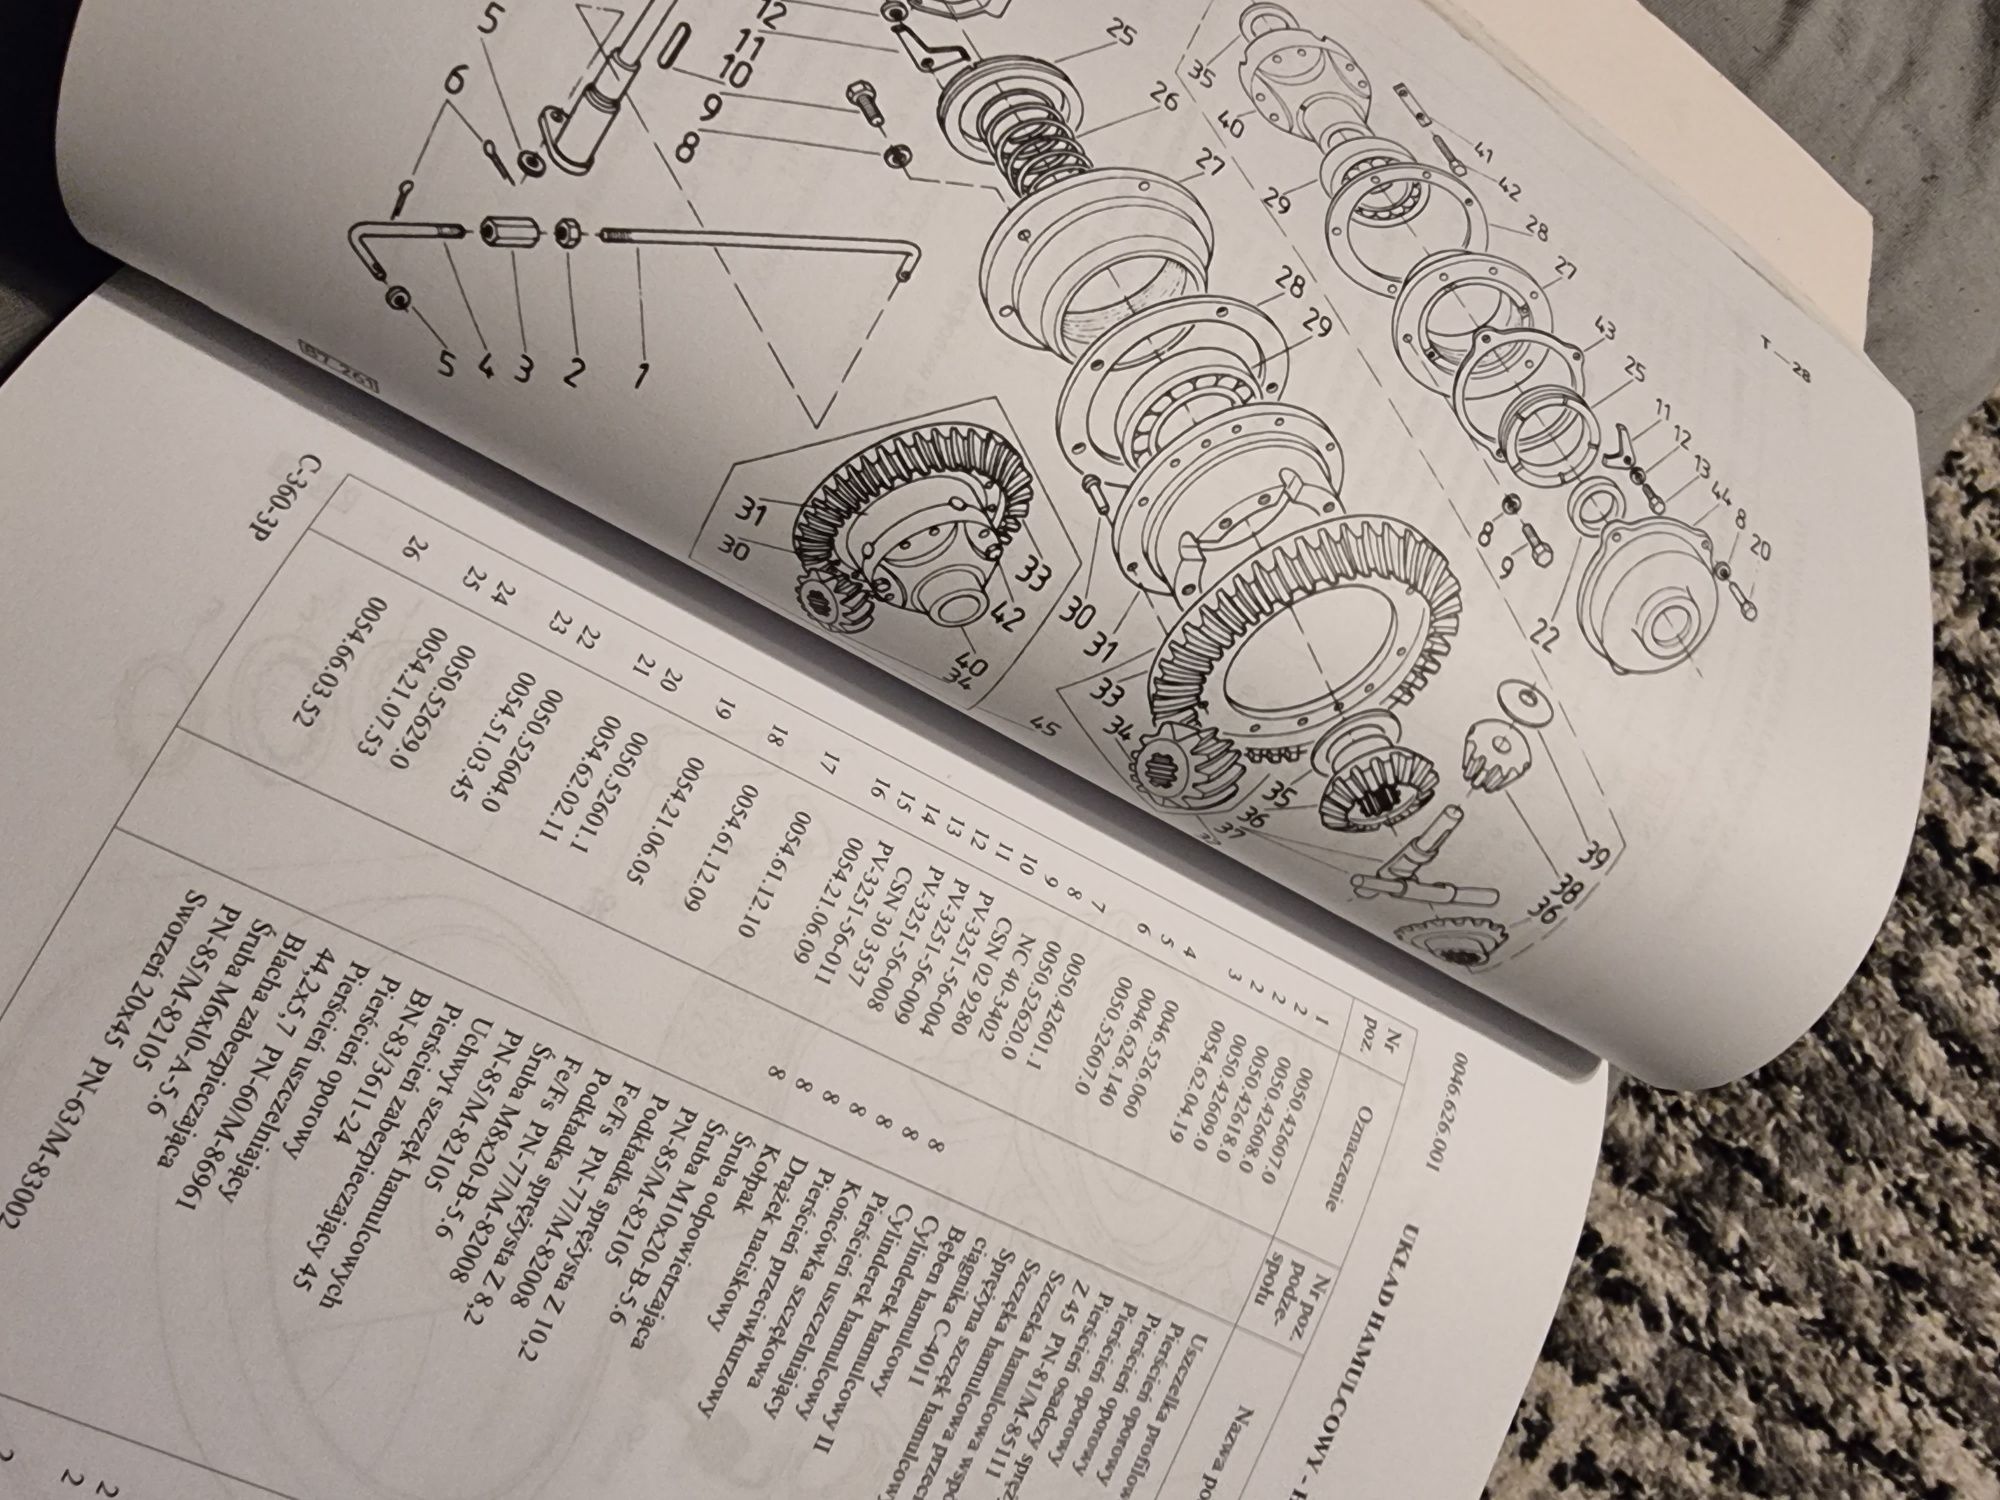 T—28
12
11
10
9
8
5
6
5
4
3
2
1
25
26
27
28
29
35
40
41
42
29
28
27
43
25
11
12
13
44
8
20
8
9
22
31
30
33
42
40
34
45
30
31
33
34
35
36
37
39
38
36
87-261
C-360-3P
0046.626.001
UKŁAD HAMULCOWY -
Nr poz.
Oznaczenie
Nr poz. podze- społu
Nazwa
1 0050.42607.0 Uszczelka
2 0050.42608.0 Pierścień oporowy
2 0050.42618.0 Pierścień oporowy
2 0050.42609.0 Pierścień oporowy
3 0054.62.04.19 Pierścień osadczy
Z 45 PN-81/M-85111
4 0046.526.060 Szczęka hamulcowa
5 0046.626.140 Szczęka hamulcowa
6 0050.52607.0 Sprężyna szczęk hamulcowych
ciągnika C-4011
7 0050.42601.1 Bęben hamulcowy
8 0050.52620.0 Cylinderek hamulcowy
9 NC 40-3402 Cylinderek hamulcowy II
10 CSN 02 9280 8 Pierścień uszczelniający
11 PV-3251-56-004 8 Końcówka szczękowa
12 PV-3251-56-009 8 Pierścień przeciwkurzowy
13 PV-3251-56-008 8 Drążek naciskowy
14 CSN 30 3537 8 Kołpak
15 PV-3251-56-011 8 Śruba odpowietrzająca
16 0054.21.06.09 Śruba M10x20-B-5.6
PN-85/M-82105
17 0054.61.12.10 Podkładka sprężysta Z 10,2
Fe/Fs PN-77/M-82008
18 0054.61.12.09 Podkładka sprężysta Z 8,2
Fe/Fs PN-77/M-82008
19 0054.21.06.05 Śruba M8x20-B-5.6
PN-85/M-82105
20 0050.52601.1 Uchwyt szczęk hamulcowych
21 0054.62.02.11 Pierścień zabezpieczający 45
BN-83/3611-24
22 0050.52604.0 Pierścień oporowy
23 0054.51.03.45 Pierścień uszczelniający
44,2x5,7 PN-60/M-86961
24 0050.52629.0 Blacha zabezpieczająca
25 0054.21.07.53 Śruba M6x10-A-5.6
PN-85/M-82105
26 0054.66.03.52 Sworzeń 20x45 PN-63/M-83002
2
2
2